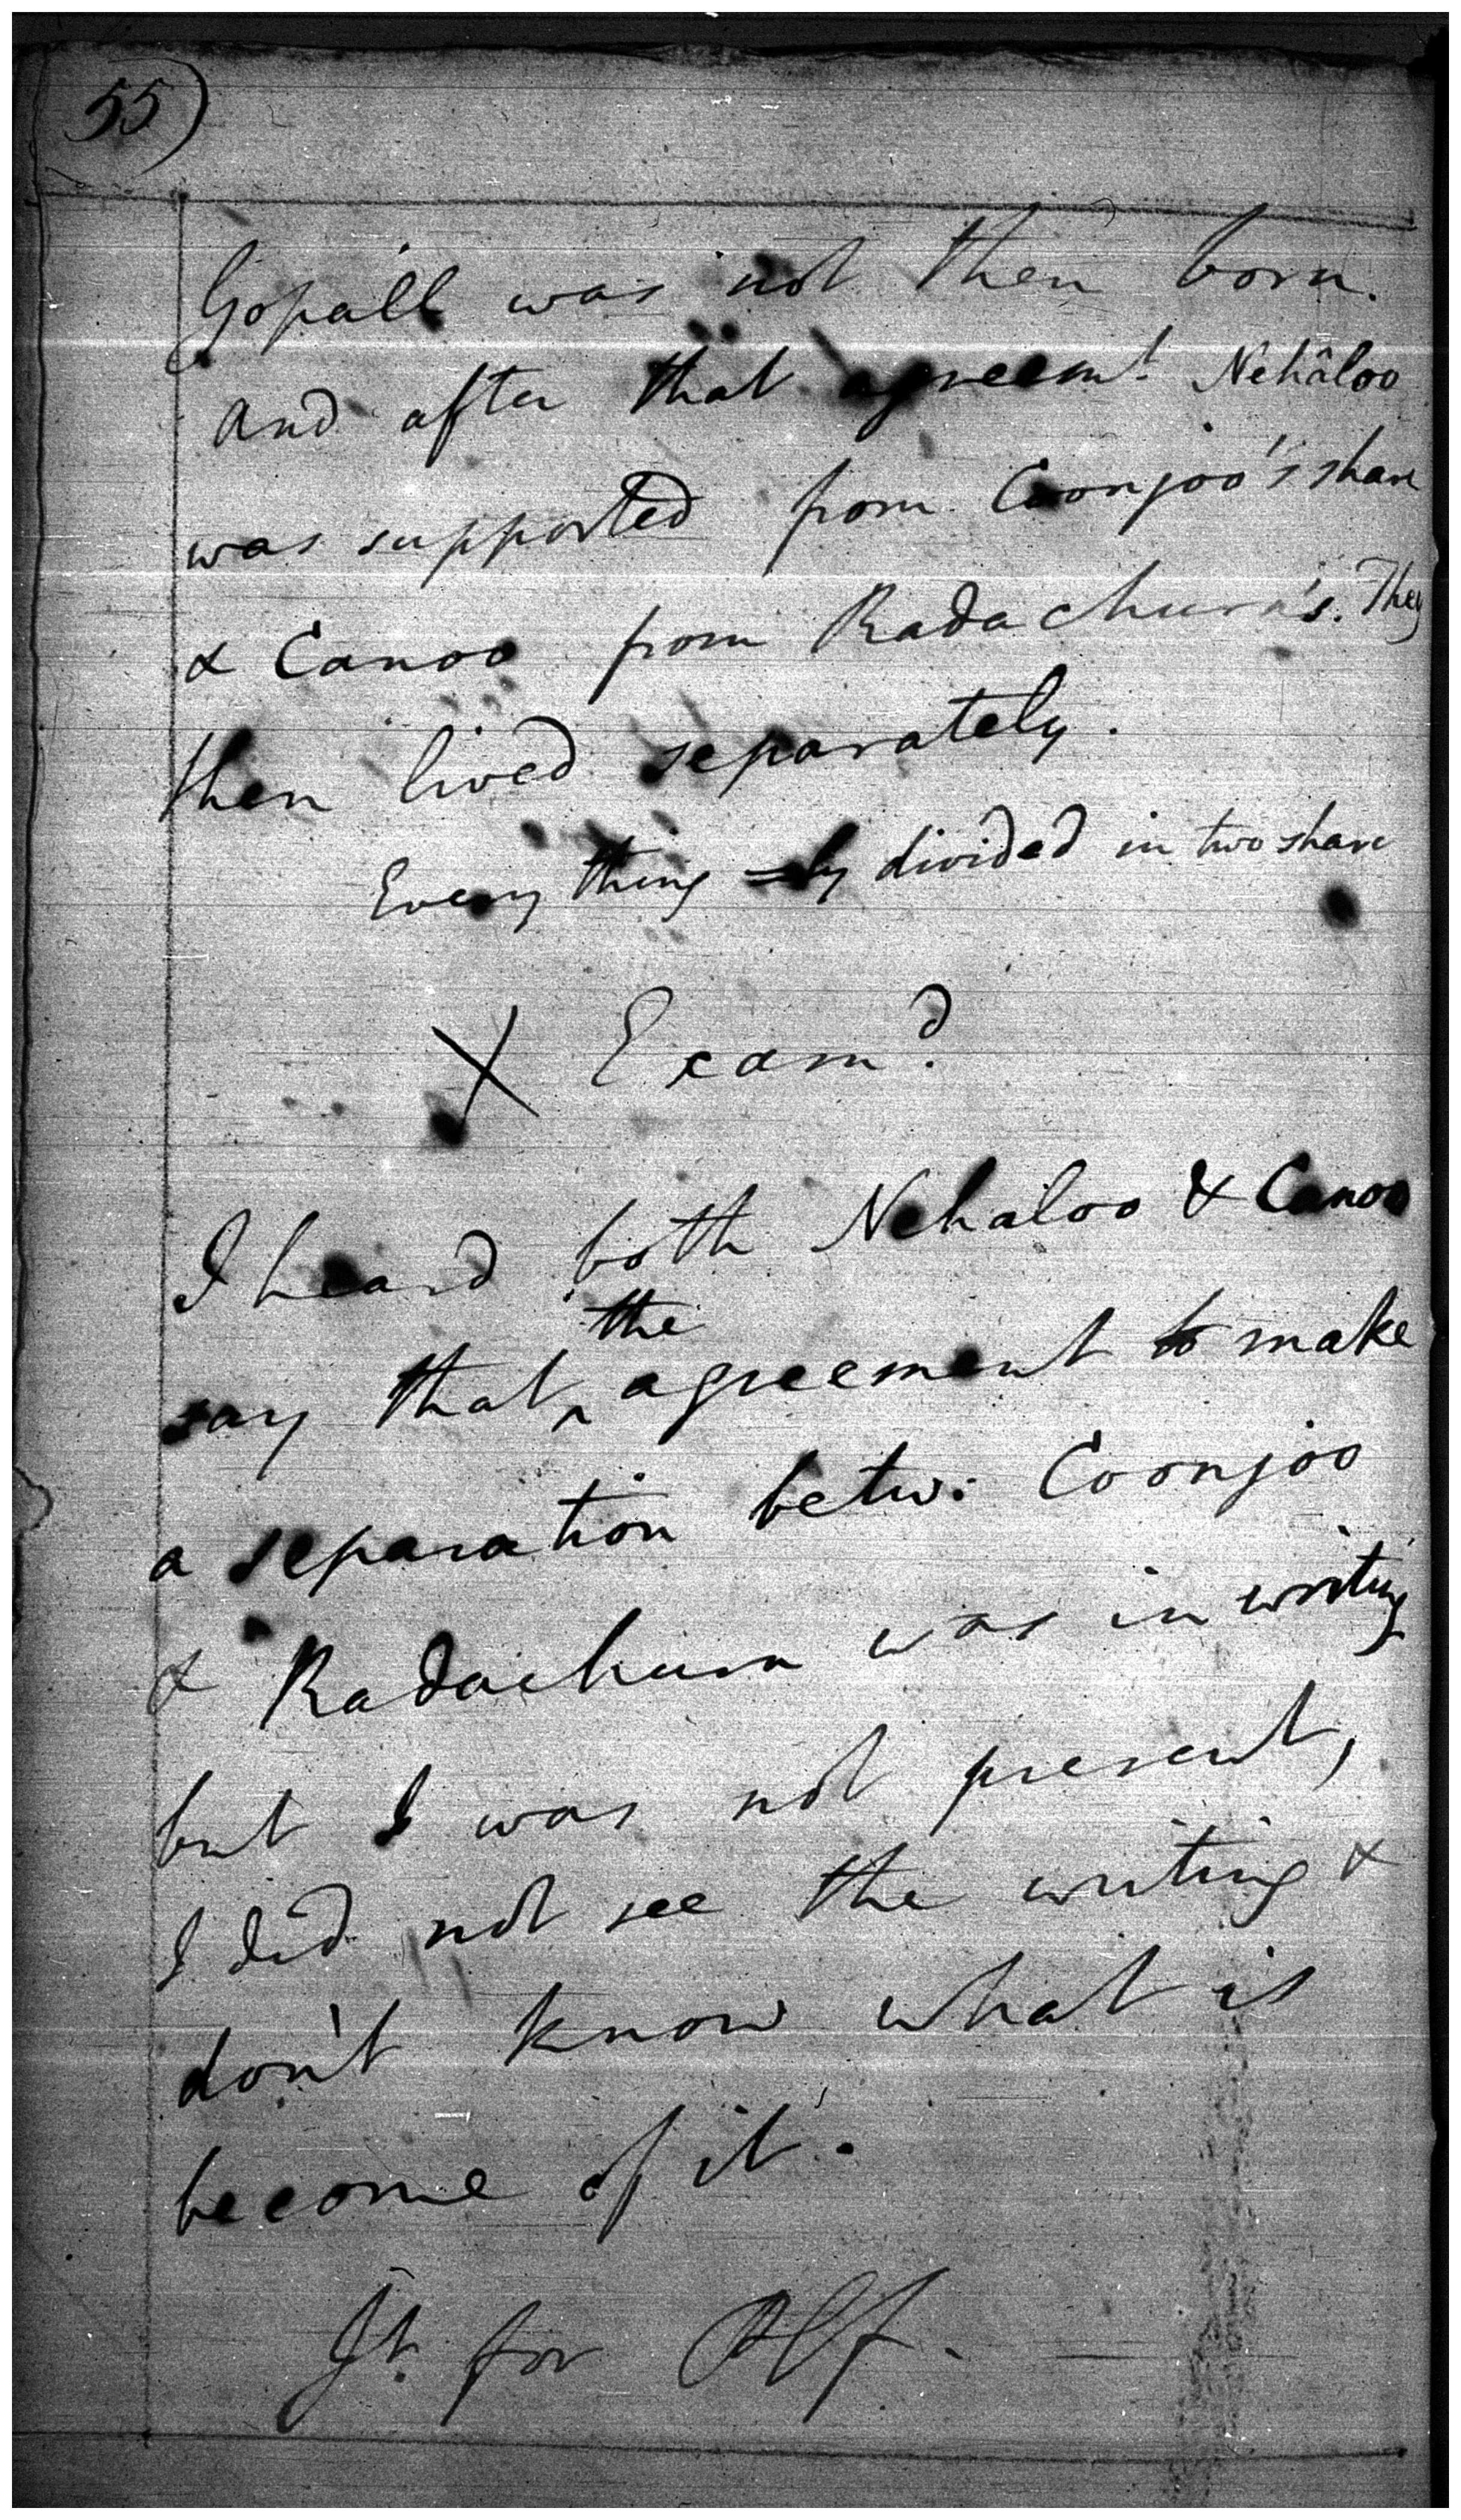 55)
Gopall was not then born.
And after that agreemt. Nehâloo
was supported from Coonjoo's share
& Canoo from Radachurn's. They
then lived separately.
Every thing divided in two share
X Examd.
I heard both Nehaloo & Canoo
the
say that ^ agreement to make
a separation betw: Coonjoo
& Radachurn was in writing
but I was not present,
I did not see the writing &
don't know what is
become of it.
Jt. for Plf.